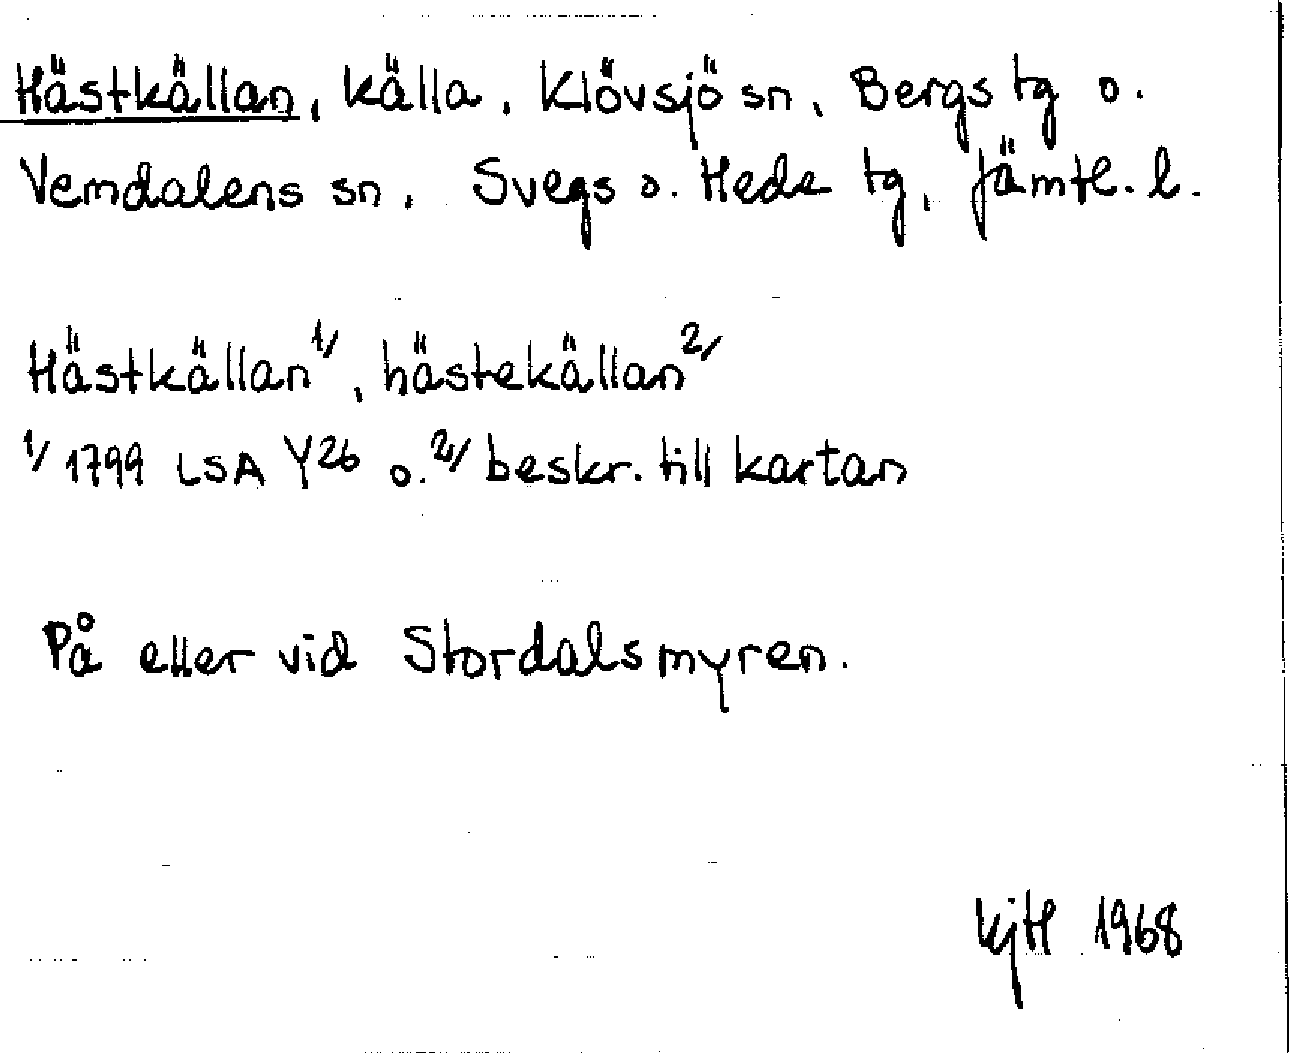 Hästkällan, källa, Klövsjö sn, Bergs tg o.
Vemdalens sn, Svegs o. Hede tg, Jämtl. l.
Hästkällan 1/, hästekällan 2/
1/ 1799 LSA Y26 o. 2/ beskr. till kartan
På eller vid Stordalsmyren.
KjH 1968